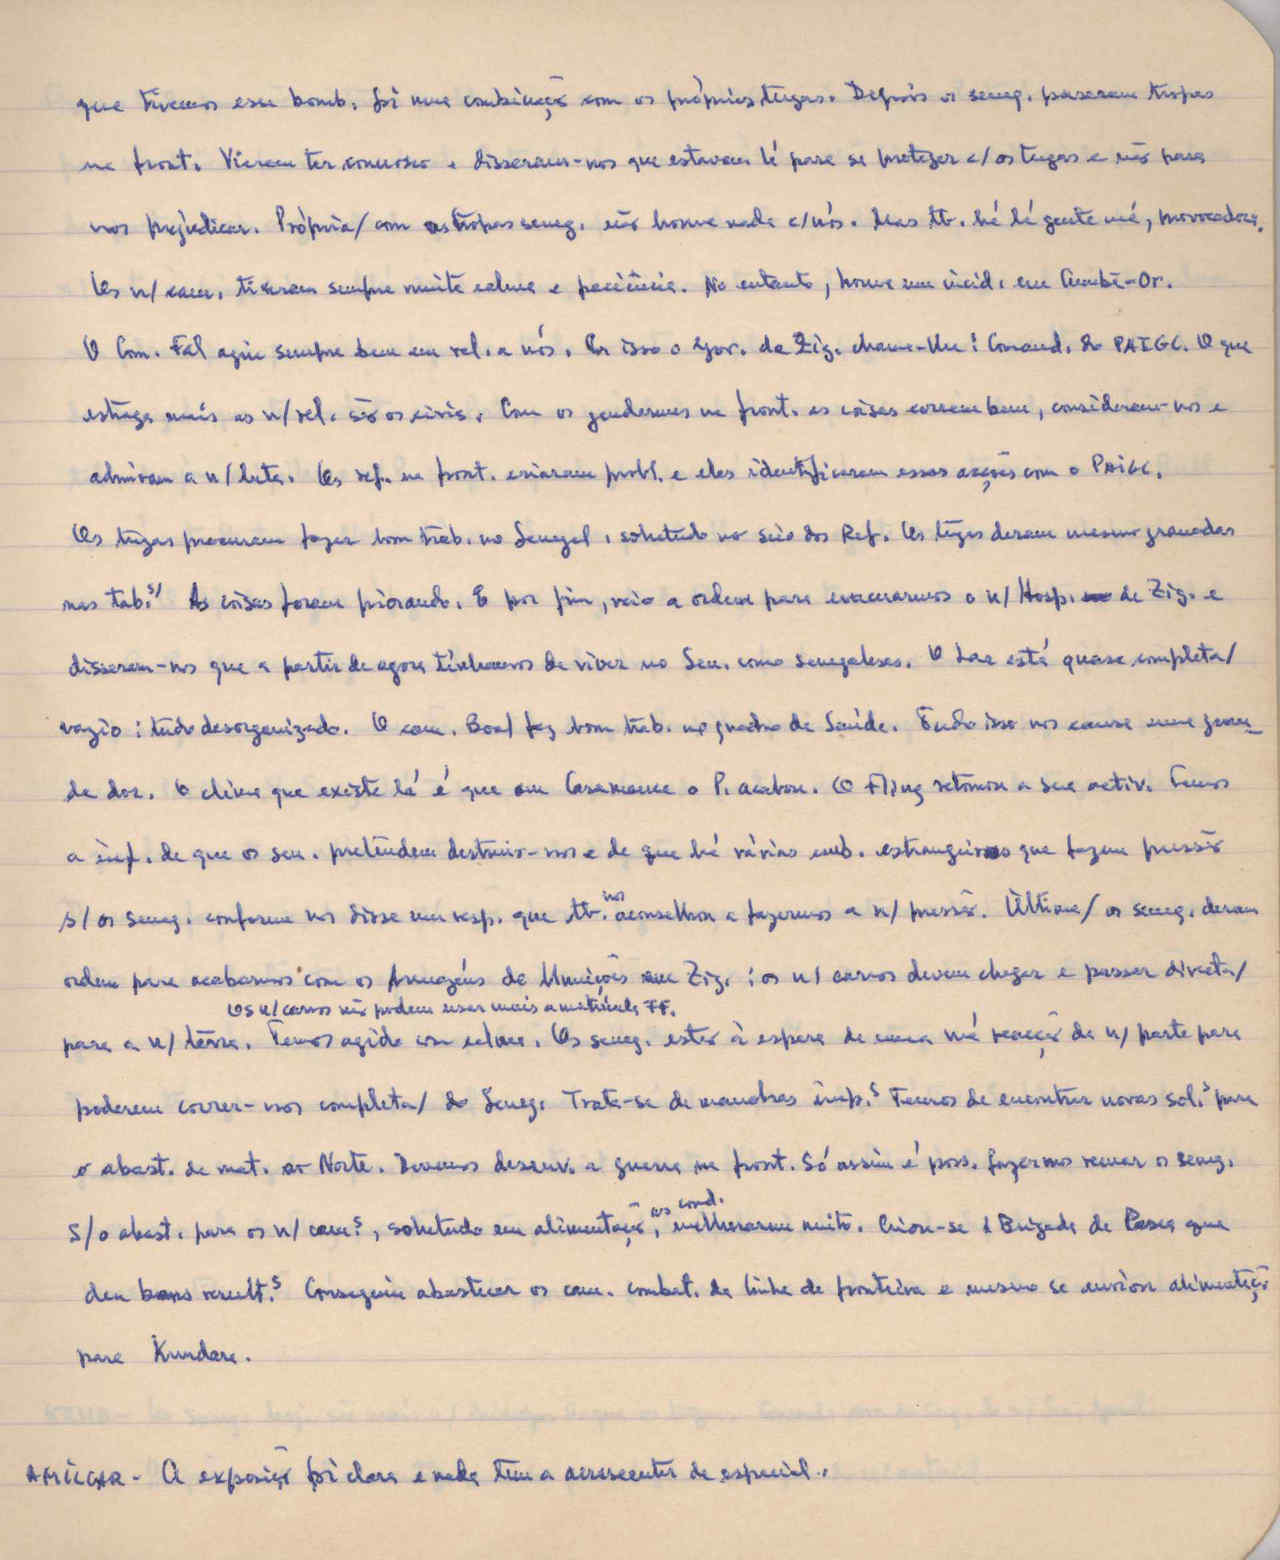 que tivemos esse bomb. foi uma combinação com os próprios tugas. Depois os seneg. puseram tropas
na front. Vieram ter connosco e disseram-nos que estavam lá para se proteger c/ os tugas e não para
nos prejudicar. Própria/ com as tropas seneg. não houve nada c/ nós. Mas tb. há lá gente má, provocadora.
Os n/ cam. tiveram sempre muita calma e paciência. No entanto, houve um incid. em Cumba-Or.
O Com. Fal agiu sempre bem em rel. a nós. Por isso o gov. de Zig. chama-lhe: Comand. do PAIGC. O que
estraga mais as n/ rel. são os civis. Com os gendarmes na front. as coisas correm bem, consideram-nos e
admiram a n/ luta. Os ref. na front. criaram probl. e eles identificaram essas acções com o PAIGC.
Os tugas procuram fazer bom trab. no Senegal, sobretudo no seio dos Ref. Os tugas deram mesmo granadas
nas tab.s/ As coisas foram piorando. E por fim, veio a ordem para evacuarmos o n/ Hosp. de Zig. e
disseram-nos que a partir de agora tínhamos de viver no Sen. como senegaleses. O Lar está quase completa/
vazio: tudo desorganizado. O cam. Boal faz bom trab. no quadro da Saúde. Tudo isso nos causa uma gran-
de dor. O clima que existe lá é que em Casamance o P. acabou. O Fling retomou a sua activ. Temos
a inf. de que os sen. pretendem destruir-nos e de que há várias emb. estrangeiras que fazem pressão
s/ os seneg. conforme nos disse um resp. que tb. nos aconselhou a fazermos a n/ pressão. Última/ os seneg. deram
ordem para acabarmos com os Armazéns de Munições em Zig.: os n/ carros devem chegar e passar directa/
Os n/ carros não podem usar mais a matrícula FF.
para a n/ terra. Temos agido com calma. Os seneg. estão à espera de uma má reacção da n/ parte para
poderem correr-nos completa/ do Seneg. Trata-se de manobras imp.s Temos de encontrar novas sol.s para
o abast. de mat. ao Norte. Devemos desenv. a guerra na front. Só assim é poss. fazermos recuar os seneg.
S/ o abast. para os n/ cam.s, sobretudo em alimentação, as cond. melhoraram muito. Criou-se 1 Brigada de Pesca que
deu bons result.s Conseguiu abastecer os cam. combat. da linha de fronteira e mesmo se enviou alimentação
para Kundara.
AMÍLCAR - A exposição foi clara e nada tem a acrescentar de especial.